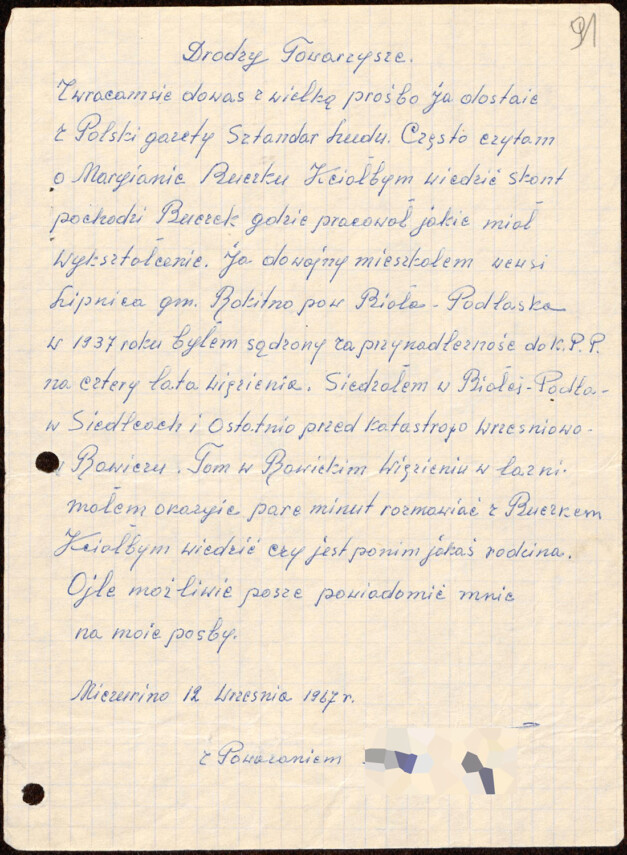 91
Drodzy Towarzysze.
Zwracamsie dowas z wielką prośbo Ja dostaie
z Polski gazety Sztandar Ludu. Często czytam
o Maryianie Buczku Kciołbym wiedzić skont
pochodzi Buczek gdzie pracowoł jakie mioł
wyksztołcenie. Ja dowojny mieszkołem wewsi
Lipnica gm. Rokitno pow Bioło-Podłaska
w 1937 roku byłem sądzony za przynadlezność do K.P.P.
na cztery lata więzienia. Siedzołem w Biołej-Podła-
w Siedlcoch i Ostotnio przed katastrofo wrzesniowo-
w Rawiczu. Tom w Rawickim Więzieniu w łazni.
mołem okazyie pare minut rozmawiać z Buczkem
Kciołbym wiedzić czy jest ponim jakaś rodzina.
Ojle możliwie posze powiadomić mnie
na moie posby.
Miczurino 12 Wrzesnia 1967 r.
z Powazaniem